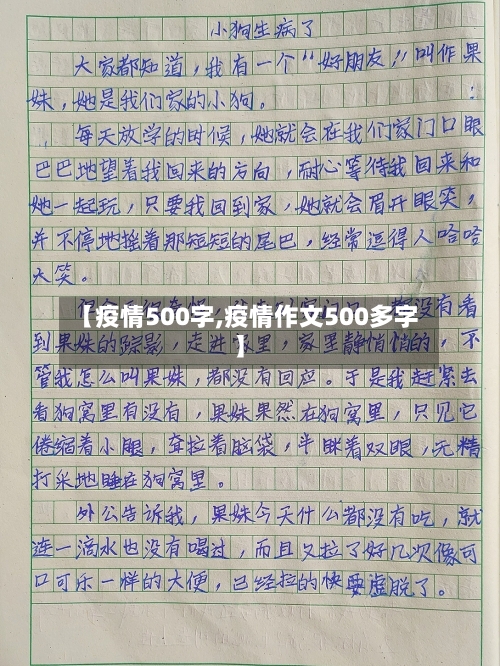 小狗生病了
大家都知道，我有一个“好朋友”叫作果
妹，她是我们家的小狗。
每天放学的时候，她就会在我们家门口眼
巴巴地望着我回来的方向，耐心等待我回来和
她一起玩，只要我回到家，她就会眉开眼笑，
并不停地摇着那短短的尾巴，经常逗得人哈哈
大笑。
都没有看
【疫情500字,疫情作文500多字
】
到果妹的踪影，走进家里，家里静悄悄的，不
管我怎么叫果妹，都没有回应。于是我赶紧去
看狗窝里有没有，果妹果然在狗窝里，只见它
倦缩着小腿，耷拉着脑袋，半眯着双眼，无精
打采地睡在狗窝里。
外公告诉我，果妹今天什么都没有吃，就
连一滴水也没有喝过，而且又拉了好几次像可
口可乐一样的大便，已经拉的快要虚脱了。